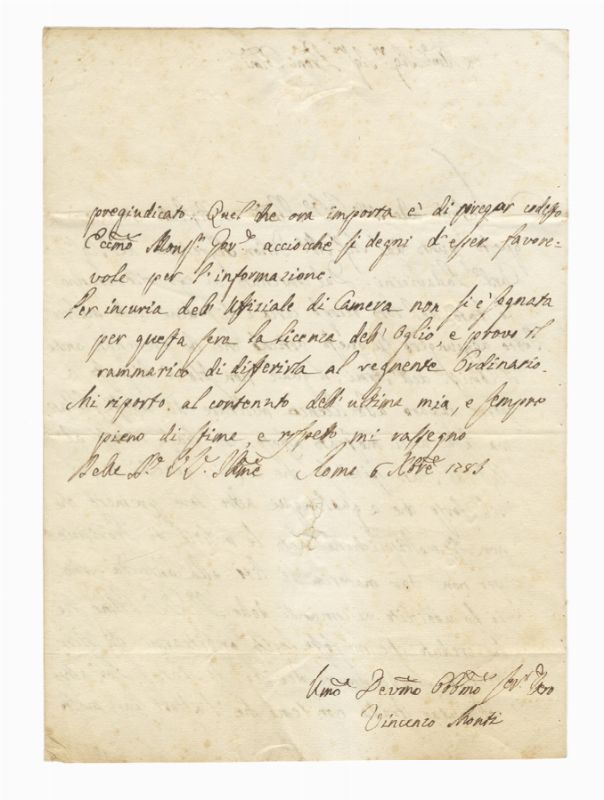 pregiudicato. Quel che ora importa è di pregar codesto
Eccmo Monsr. Govr. acciocchè si degni d'esser favore-
vole per l'informazione.
Per incuria dell'Uffiziale di Camera non si è segnata
per questa sera la licenza dell'Oglio, e provo il
rammarico di differirla al vegnente Ordinario.
Mi riporto al contenuto dell'ultima mia, e sempre
pieno di stima, e rispetto mi rassegno
Delle SS. VV. Illme Roma 6 Xbre 1783
Umo Devmo Obbmo Servre Vero
Vincenzo Monti